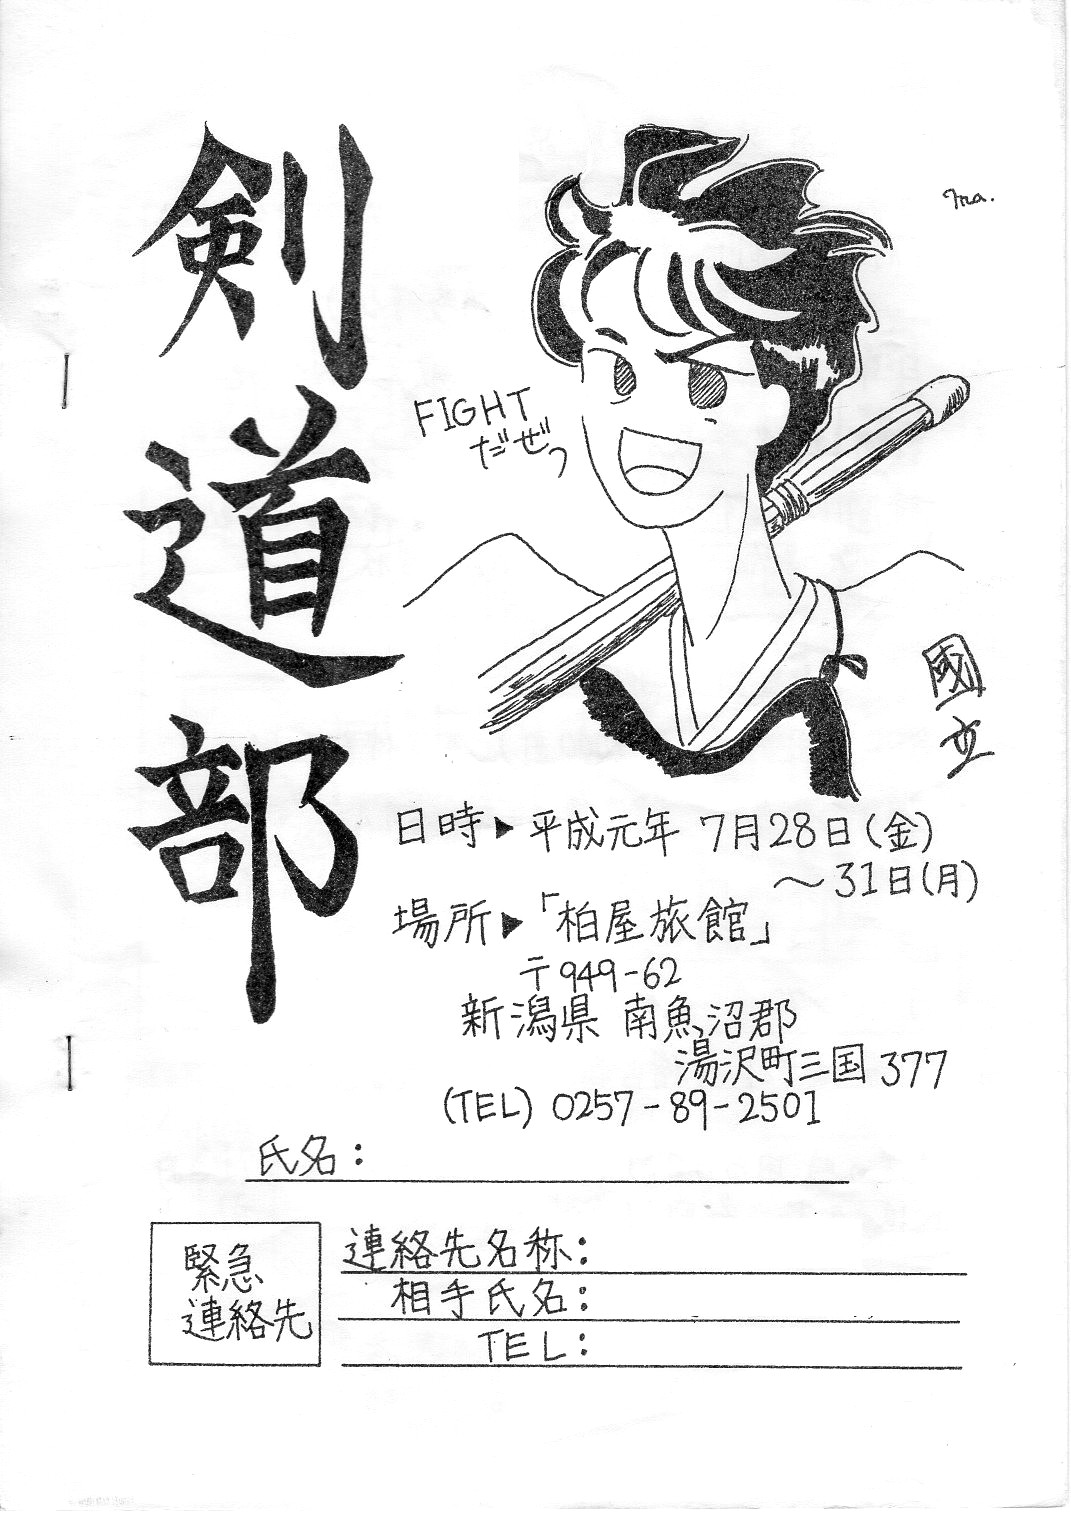 剣道部
FIGHT
だぜっ
國立
日時▶平成元年 7月28日(金)
〜31日(月)
場所▶「柏屋旅館」
〒949-62
新潟県 南魚沼郡
湯沢町三国 377
(TEL) 0257-89-2501
氏名:
緊急
連絡先
連絡先名称:
相手氏名:
TEL: